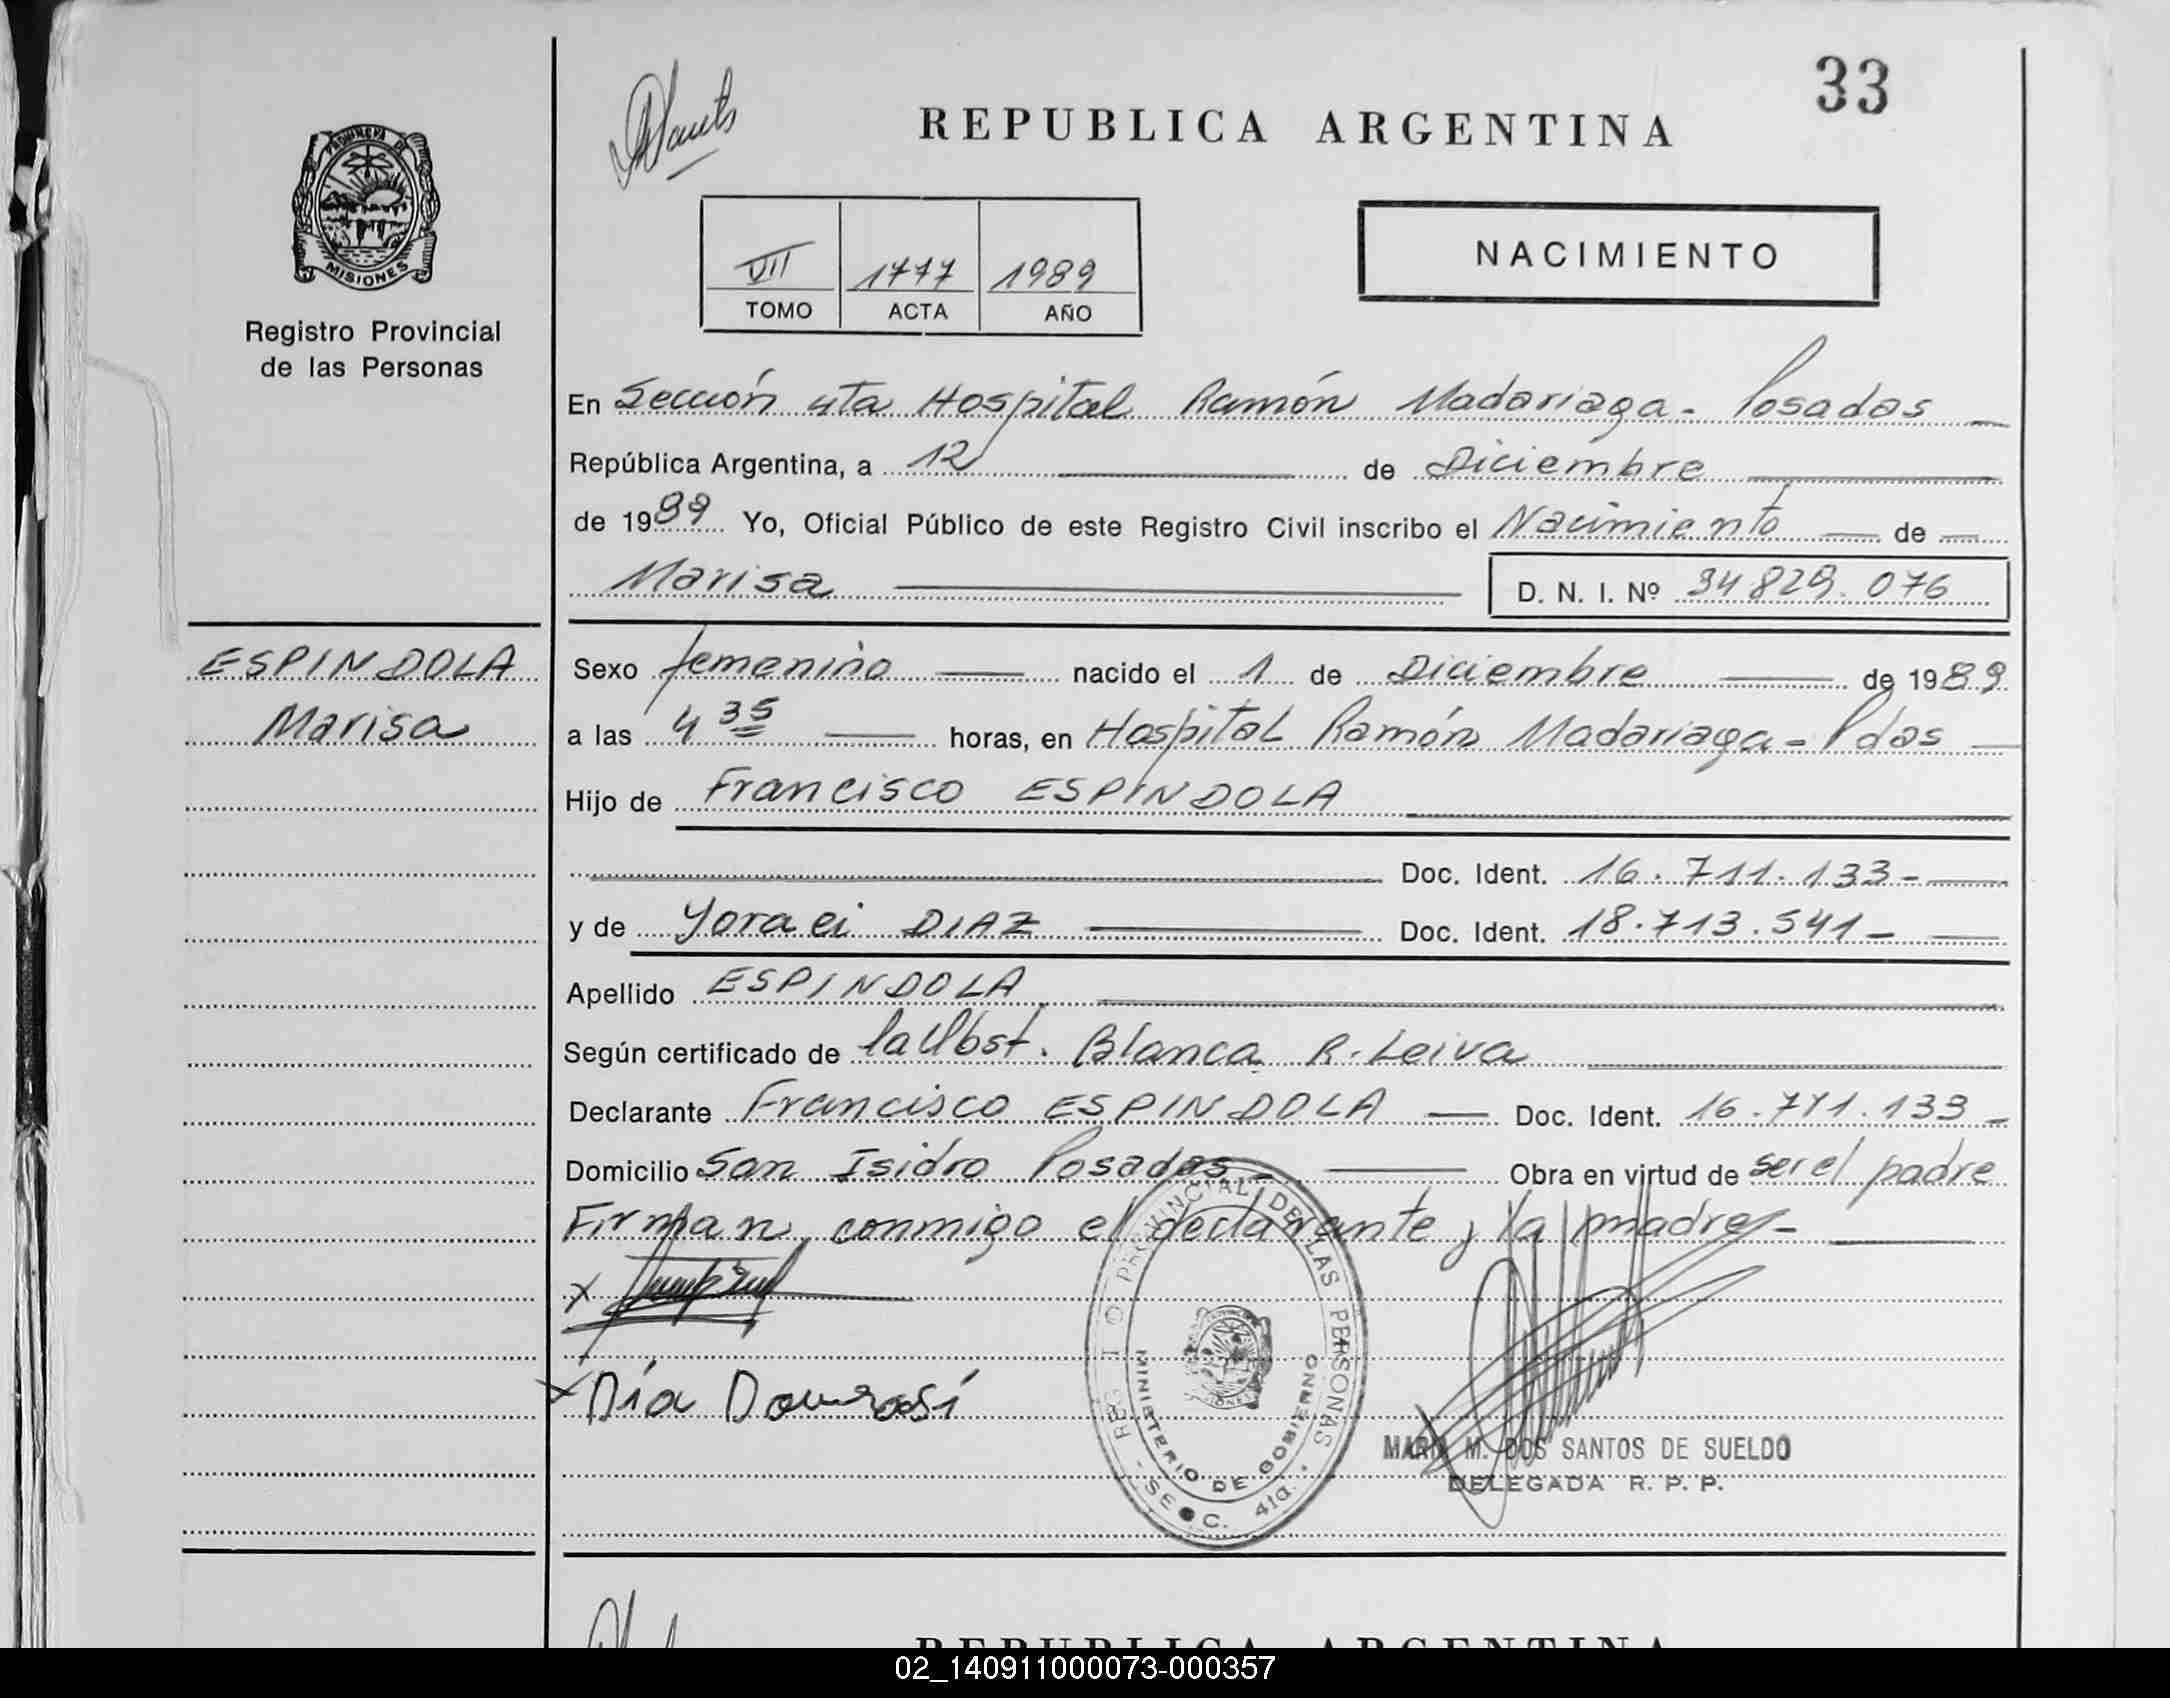 33
REPUBLICA ARGENTINA
PROVINCIA DE
MISIONES
Registro Provincial
de las Personas
VII 1777 1989
TOMO ACTA AÑO
NACIMIENTO
En Sección 4ta Hospital Ramón Madariaga - Posadas
República Argentina, a 12 de Diciembre
de 1989 Yo, Oficial Público de este Registro Civil inscribo el Nacimiento de
Marisa D. N. I. Nº 34829.076
ESPINDOLA
Marisa
Sexo femenino nacido el 1 de Diciembre de 1989
a las 4 35 horas, en Hospital Ramón Madariaga - Pdas
Hijo de Francisco ESPINDOLA
Doc. Ident. 16.711.133-
y de Yoraei DIAZ Doc. Ident. 18.713.541-
Apellido ESPINDOLA
Según certificado de la Obst. Blanca R. Leiva
Declarante Francisco ESPINDOLA Doc. Ident. 16.711.133-
Domicilio San Isidro Posadas- Obra en virtud de ser el padre
Firman conmigo el declarante y la madre-
x
x Día
PROVINCIAL DE LAS PERSONAS
MINISTERIO DE GOBIERNO
SECC. 4ta.
MARIA M. DOS SANTOS DE SUELDO
DELEGADA R. P. P.
REPUBLICA ARGENTINA
02_140911000073-000357